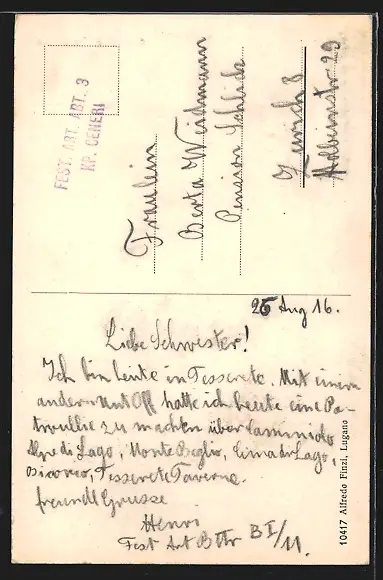 FEST. ART. ABT. 9
KP. CENERI
Fräulein
Berta Weidmann
Pension Schlick
Zurich 8
Holbeinstr 29
25 Aug 16.
Liebe Schwester!
Ich bin heute in Tesserete. Mit einem
andern UntOff hatte ich heute eine Pa-
trouille zu machen über Cammiolo
Alpe di Lago, Monte Biglio, Cima di Lago,
Tesserete Taverne.
freundl Grüsse
Henri
Fest Art Bttr BI/11.
10417 Alfredo Finzi, Lugano